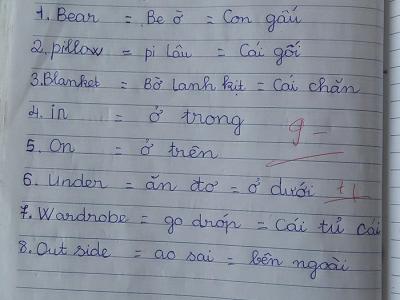 1. Bear = Be ờ = Con gấu
2. pillow = pi lâu = Cái gối
3. Blanket = Bờ lanh kịt = Cái chăn
4. in = ở trong
9-
5. On = ở trên
6. Under = ăn đơ = ở dưới
7. Wardrobe = go dróp = Cái tủ cái
8. Out side = ao sai = bên ngoài